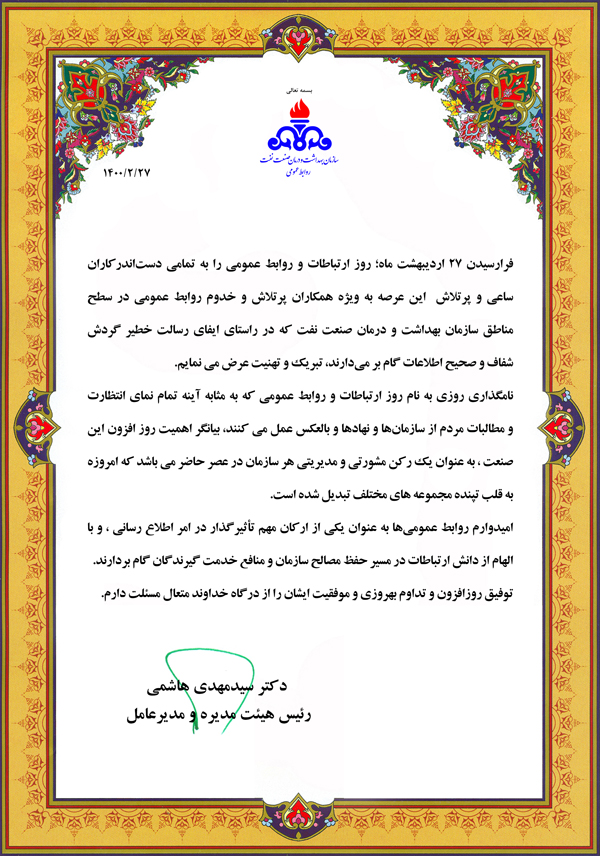 بسمه تعالی
سازمان بهداشت و درمان صنعت نفت
روابط عمومی
۱۴۰۰/۲/۲۷
فرارسیدن ۲۷ اردیبهشت ماه؛ روز ارتباطات و روابط عمومی را به تمامی دست‌اندرکاران
ساعی و پرتلاش این عرصه به ویژه همکاران پرتلاش و خدوم روابط عمومی در سطح
مناطق سازمان بهداشت و درمان صنعت نفت که در راستای ایفای رسالت خطیر گردش
شفاف و صحیح اطلاعات گام بر می‌دارند، تبریک و تهنیت عرض می نمایم.
نامگذاری روزی به نام روز ارتباطات و روابط عمومی که به مثابه آینه تمام نمای انتظارت
و مطالبات مردم از سازمان‌ها و نهادها و بالعکس عمل می کنند، بیانگر اهمیت روز افزون این
صنعت ، به عنوان یک رکن مشورتی و مدیریتی هر سازمان در عصر حاضر می باشد که امروزه
به قلب تپنده مجموعه های مختلف تبدیل شده است.
امیدوارم روابط عمومی‌ها به عنوان یکی از ارکان مهم تأثیرگذار در امر اطلاع رسانی ، و با
الهام از دانش ارتباطات در مسیر حفظ مصالح سازمان و منافع خدمت گیرندگان گام بردارند.
توفیق روزافزون و تداوم بهروزی و موفقیت ایشان را از درگاه خداوند متعال مسئلت دارم.
دکتر سیدمهدی هاشمی
رئیس هیئت مدیره و مدیرعامل